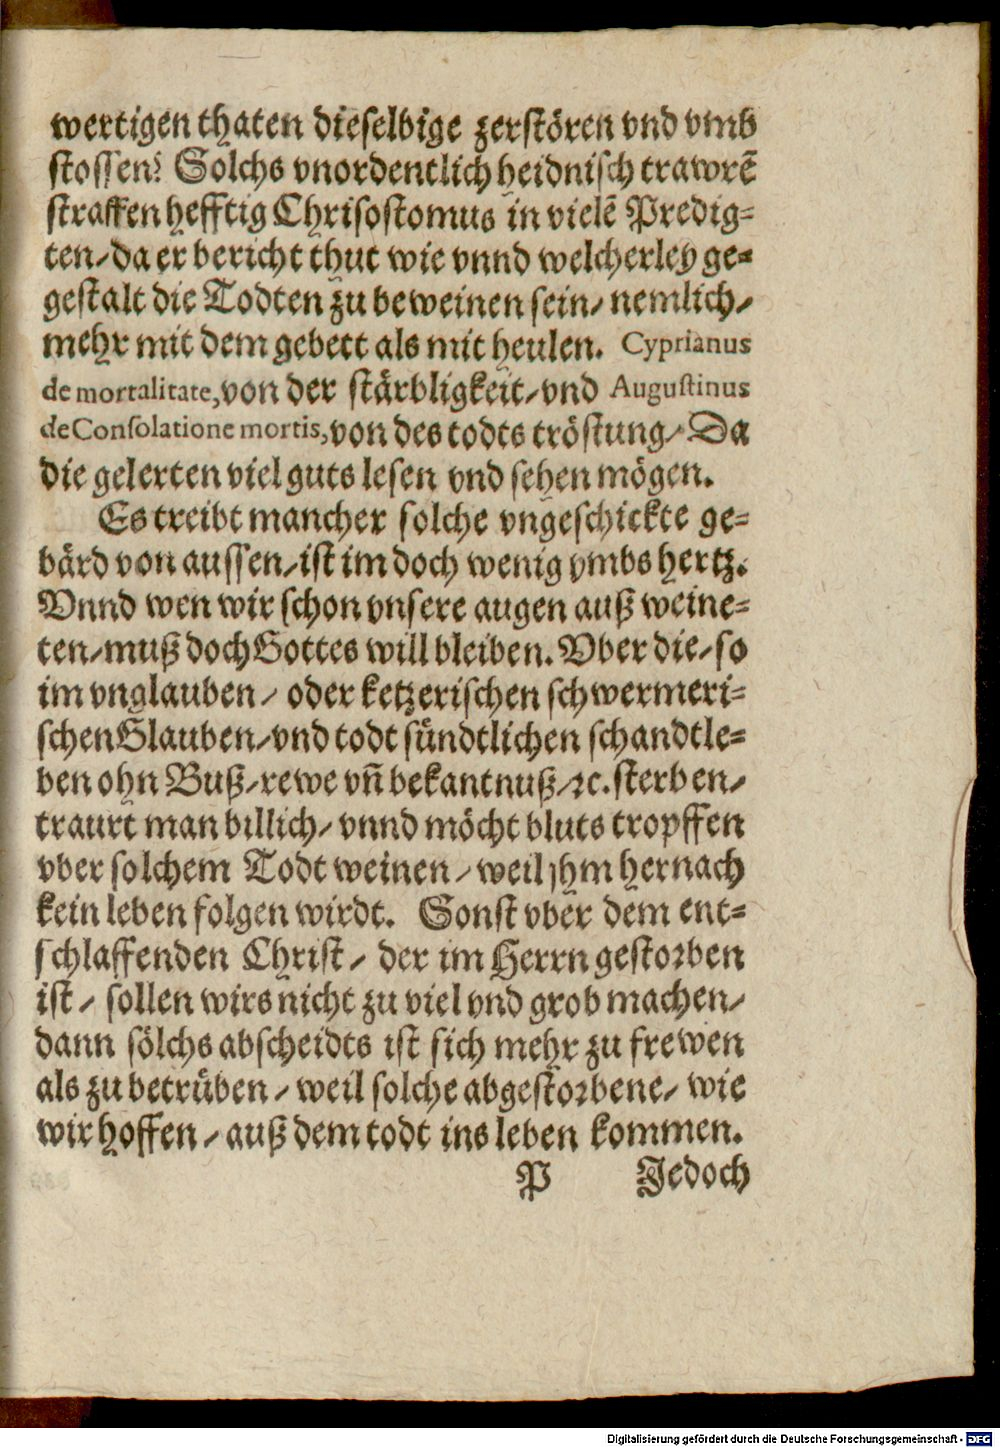 wertigen thaten dieselbige zerstören vnd vmb
stossen? Solchs vnordentlich heidnisch trawrē
straffen hefftig Chrisostomus in vielē Predig=
ten/ da er bericht thut wie vnnd welcherley ge=
gestalt die Todten zu beweinen sein/ nemlich/
mehr mit dem gebett als mit heulen. Cyprianus
de mortalitate, von der stärbligkeit/ vnd Augustinus
de Consolatione mortis, von des todts tröstung/ Da
die gelerten viel guts lesen vnd sehen mögen.
Es treibt mancher solche vngeschickte ge=
bärd von aussen/ ist im doch wenig vmbs hertz.
Vnnd wen wir schon vnsere augen auß weine=
ten/ muß doch Gottes will bleiben. Vber die/ so
im vnglauben/ oder ketzerischen schwermeri=
schen Glauben/ vnd todt sündtlichen schandtle=
ben ohn Buß/ rewe vñ bekantnuß/ ꝛc. sterben/
traurt man billich/ vnnd möcht bluts tropffen
vber solchem Todt weinen/ weil jhm hernach
kein leben folgen wirdt. Sonst vber dem ent=
schlaffenden Christ/ der im Herrn gestorben
ist/ sollen wirs nicht zu viel vnd grob machen/
dann sölchs abscheidts ist sich mehr zu frewen
als zu betrüben/ weil solche abgestorbene/ wie
wir hoffen/ auß dem todt ins leben kommen.
P Jedoch
Digitalisierung gefördert durch die Deutsche Forschungsgemeinschaft - DFG